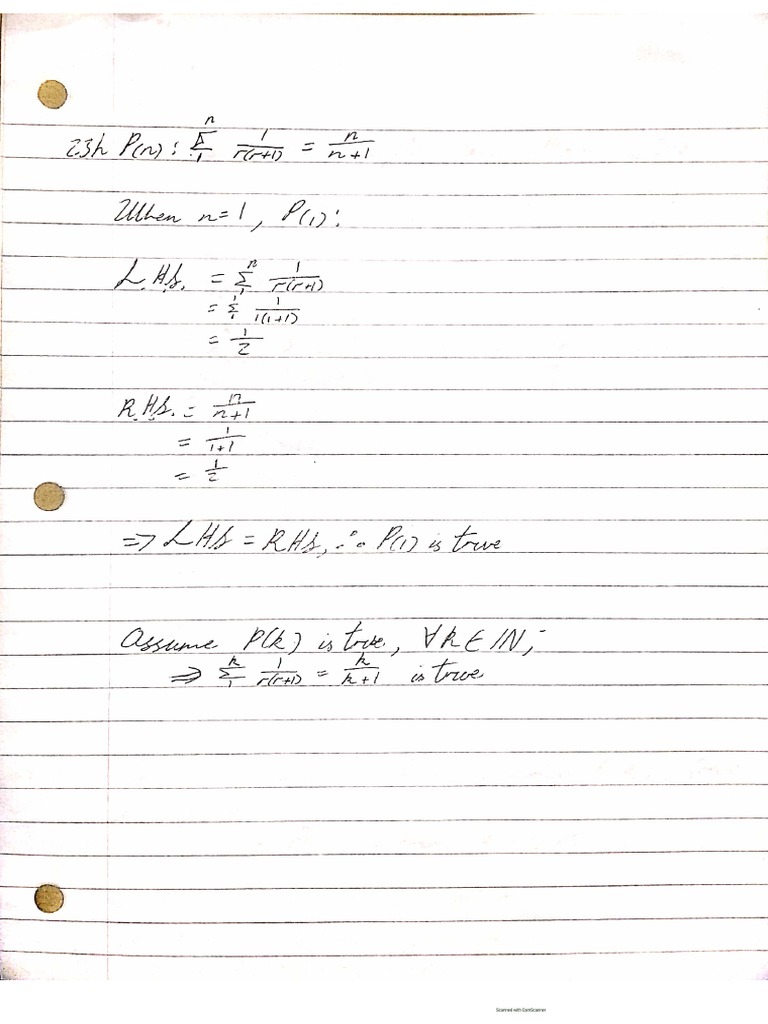 23h P(n): Σ₁ⁿ 1/r(r+1) = n/n+1
When n=1, P(1):
L.H.S. = Σ₁ⁿ 1/r(r+1)
= Σ₁¹ 1/1(1+1)
= 1/2
R.H.S. = n/n+1
= 1/1+1
= 1/2
=> LHS = RHS, ∴ P(1) is true
Assume P(k) is true, ∀k∈ℕ,
=> Σ₁ᵏ 1/r(r+1) = k/k+1 is true
Scanned with CamScanner